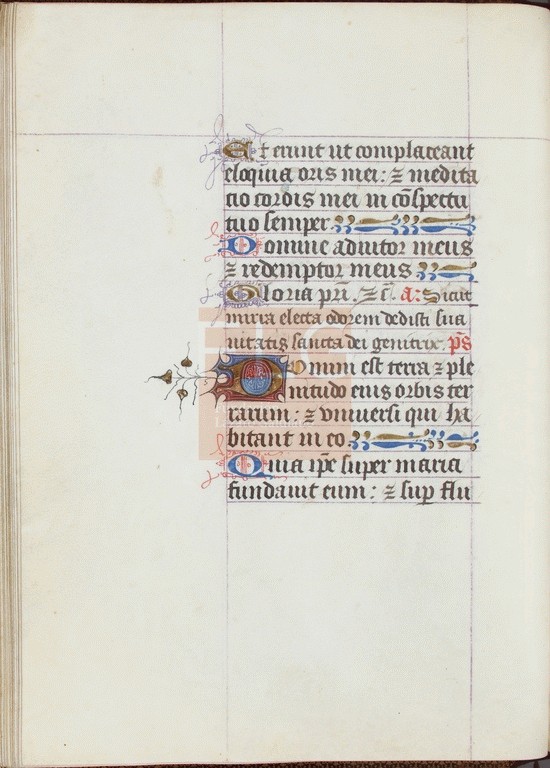 Et erunt ut complaceant
eloquia oris mei: ⁊ medita
cio cordis mei in cōspectu
tuo semper.
Domine adiutor meus
⁊ redemptor meus
Gloria pri̅. ⁊ c̅. a: Sicut
mirra electa odorem dedisti sua
uitatis sancta dei genitrix. p̅s
Domini est terra ⁊ ple
nitudo eius orbis ter
rarum: ⁊ vniuersi qui ha
bitant in eo.
Quia ip̅e super maria
fundauit eum: ⁊ sup̱ flu